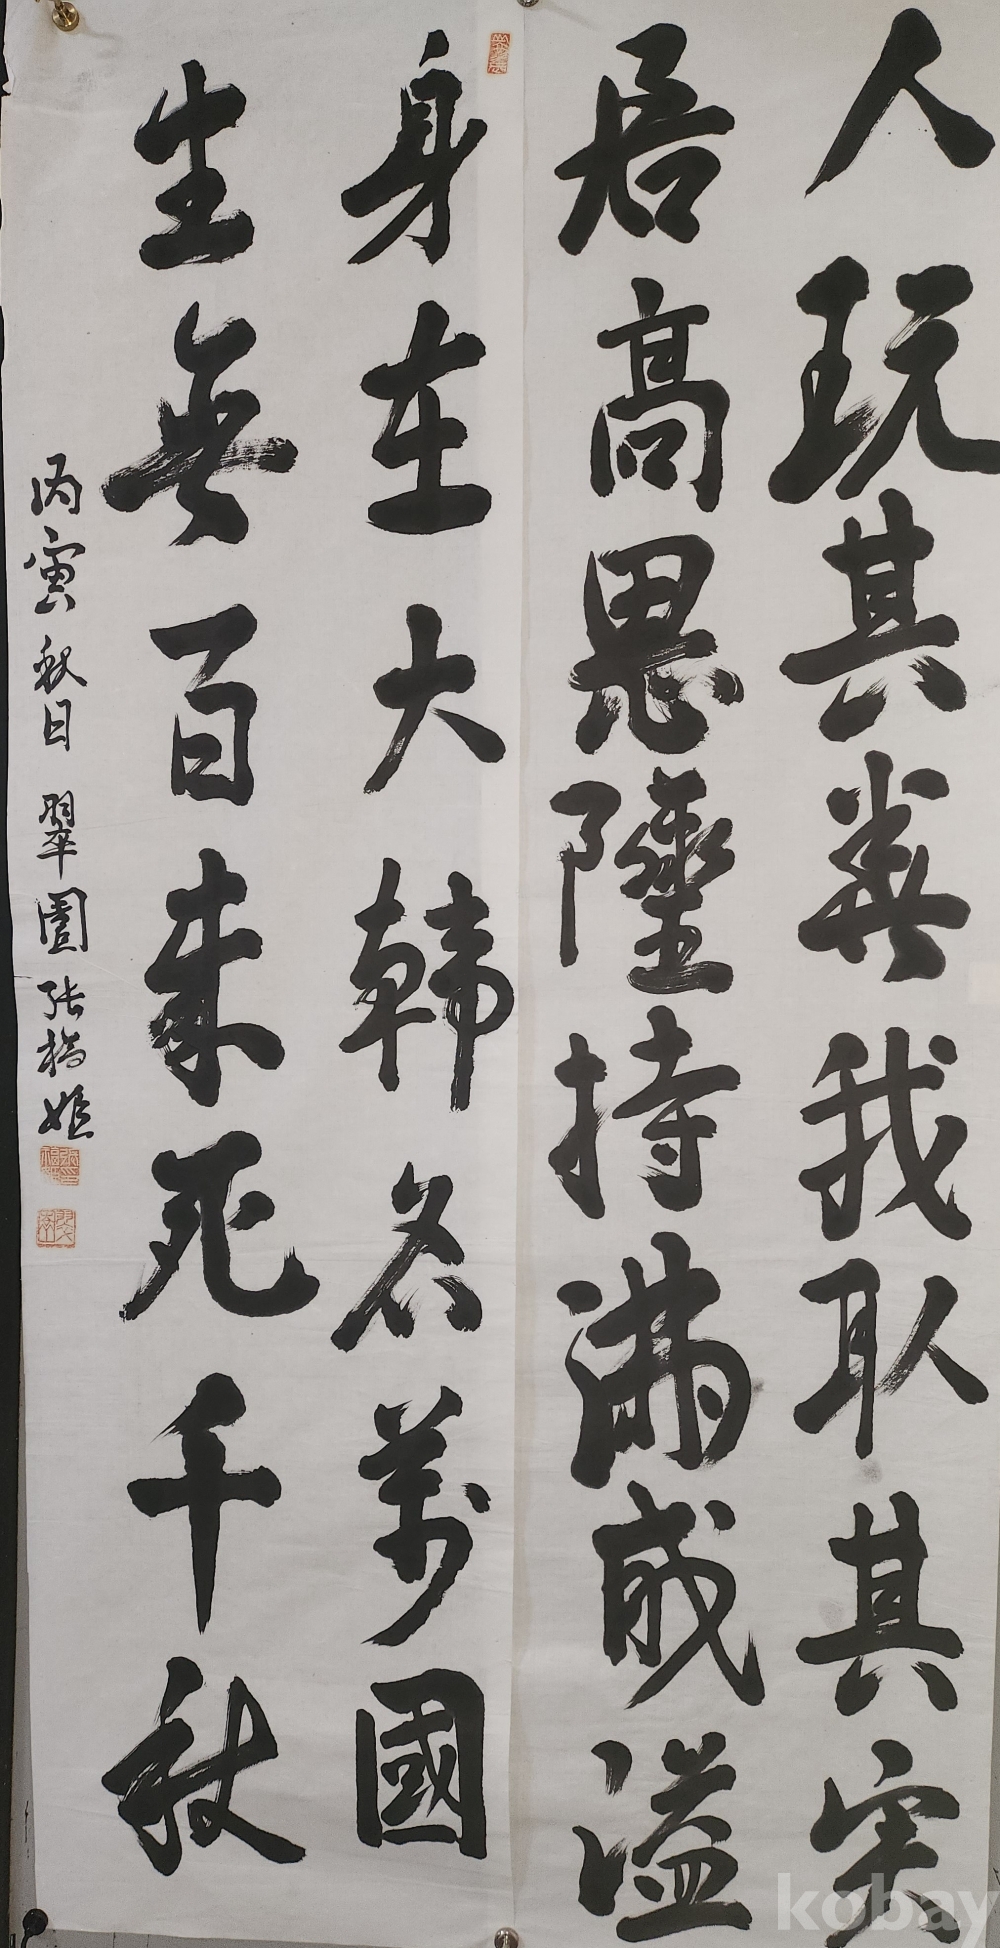 人玩其華我取其実
居高思墜持滿戒溢
身在大韓名萬國
生無百死千秋
丙寅秋日 翠園 張福姬
kobay